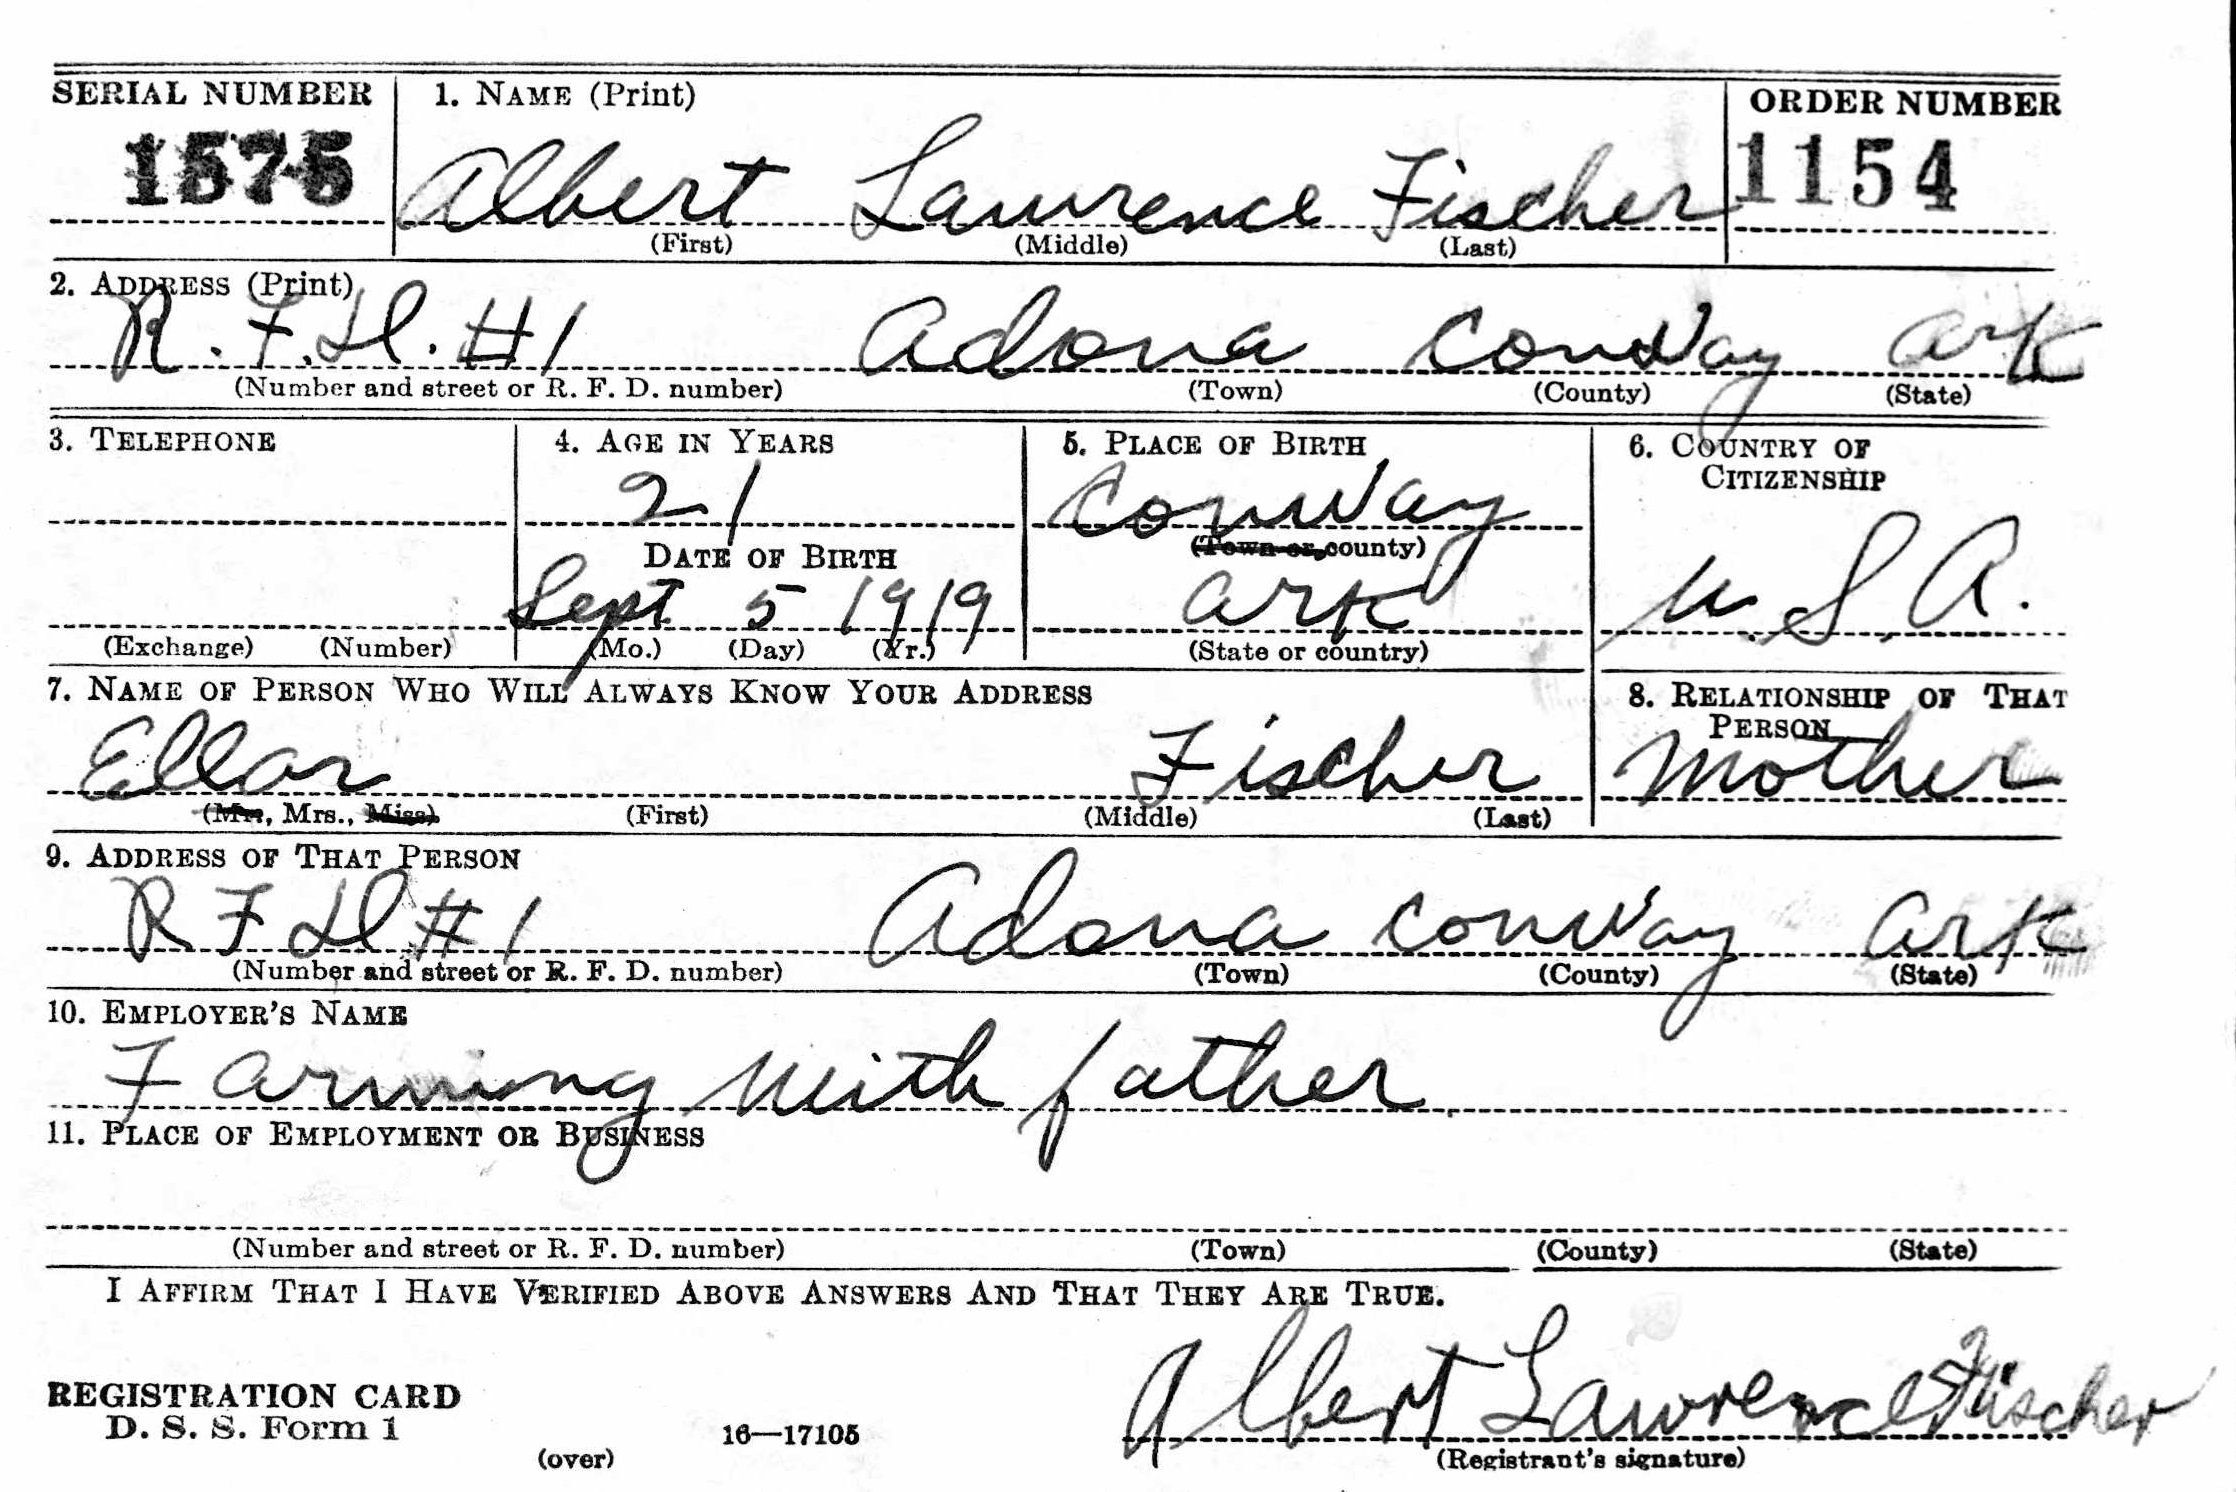 SERIAL NUMBER 1. NAME (Print) ORDER NUMBER
1575 Albert Lawrence Fischer 1154
(First) (Middle) (Last)
2. ADDRESS (Print)
R. F. D. #1 Adona Conway Ark
(Number and street or R. F. D. number) (Town) (County) (State)
3. TELEPHONE 4. AGE IN YEARS 5. PLACE OF BIRTH 6. COUNTRY OF CITIZENSHIP
21 Conway
DATE OF BIRTH (Town or county)
Sept 5 1919 Ark U. S. A.
(Exchange) (Number) (Mo.) (Day) (Yr.) (State or country)
7. NAME OF PERSON WHO WILL ALWAYS KNOW YOUR ADDRESS 8. RELATIONSHIP OF THAT PERSON
Ellar Fischer Mother
(Mr., Mrs., Miss) (First) (Middle) (Last)
9. ADDRESS OF THAT PERSON
R F D #1 Adona Conway Ark
(Number and street or R. F. D. number) (Town) (County) (State)
10. EMPLOYER'S NAME
Farming with father
11. PLACE OF EMPLOYMENT OR BUSINESS
(Number and street or R. F. D. number) (Town) (County) (State)
I AFFIRM THAT I HAVE VERIFIED ABOVE ANSWERS AND THAT THEY ARE TRUE.
Albert Lawrence Fischer
REGISTRATION CARD
D. S. S. Form 1 16—17105
(over) (Registrant's signature)